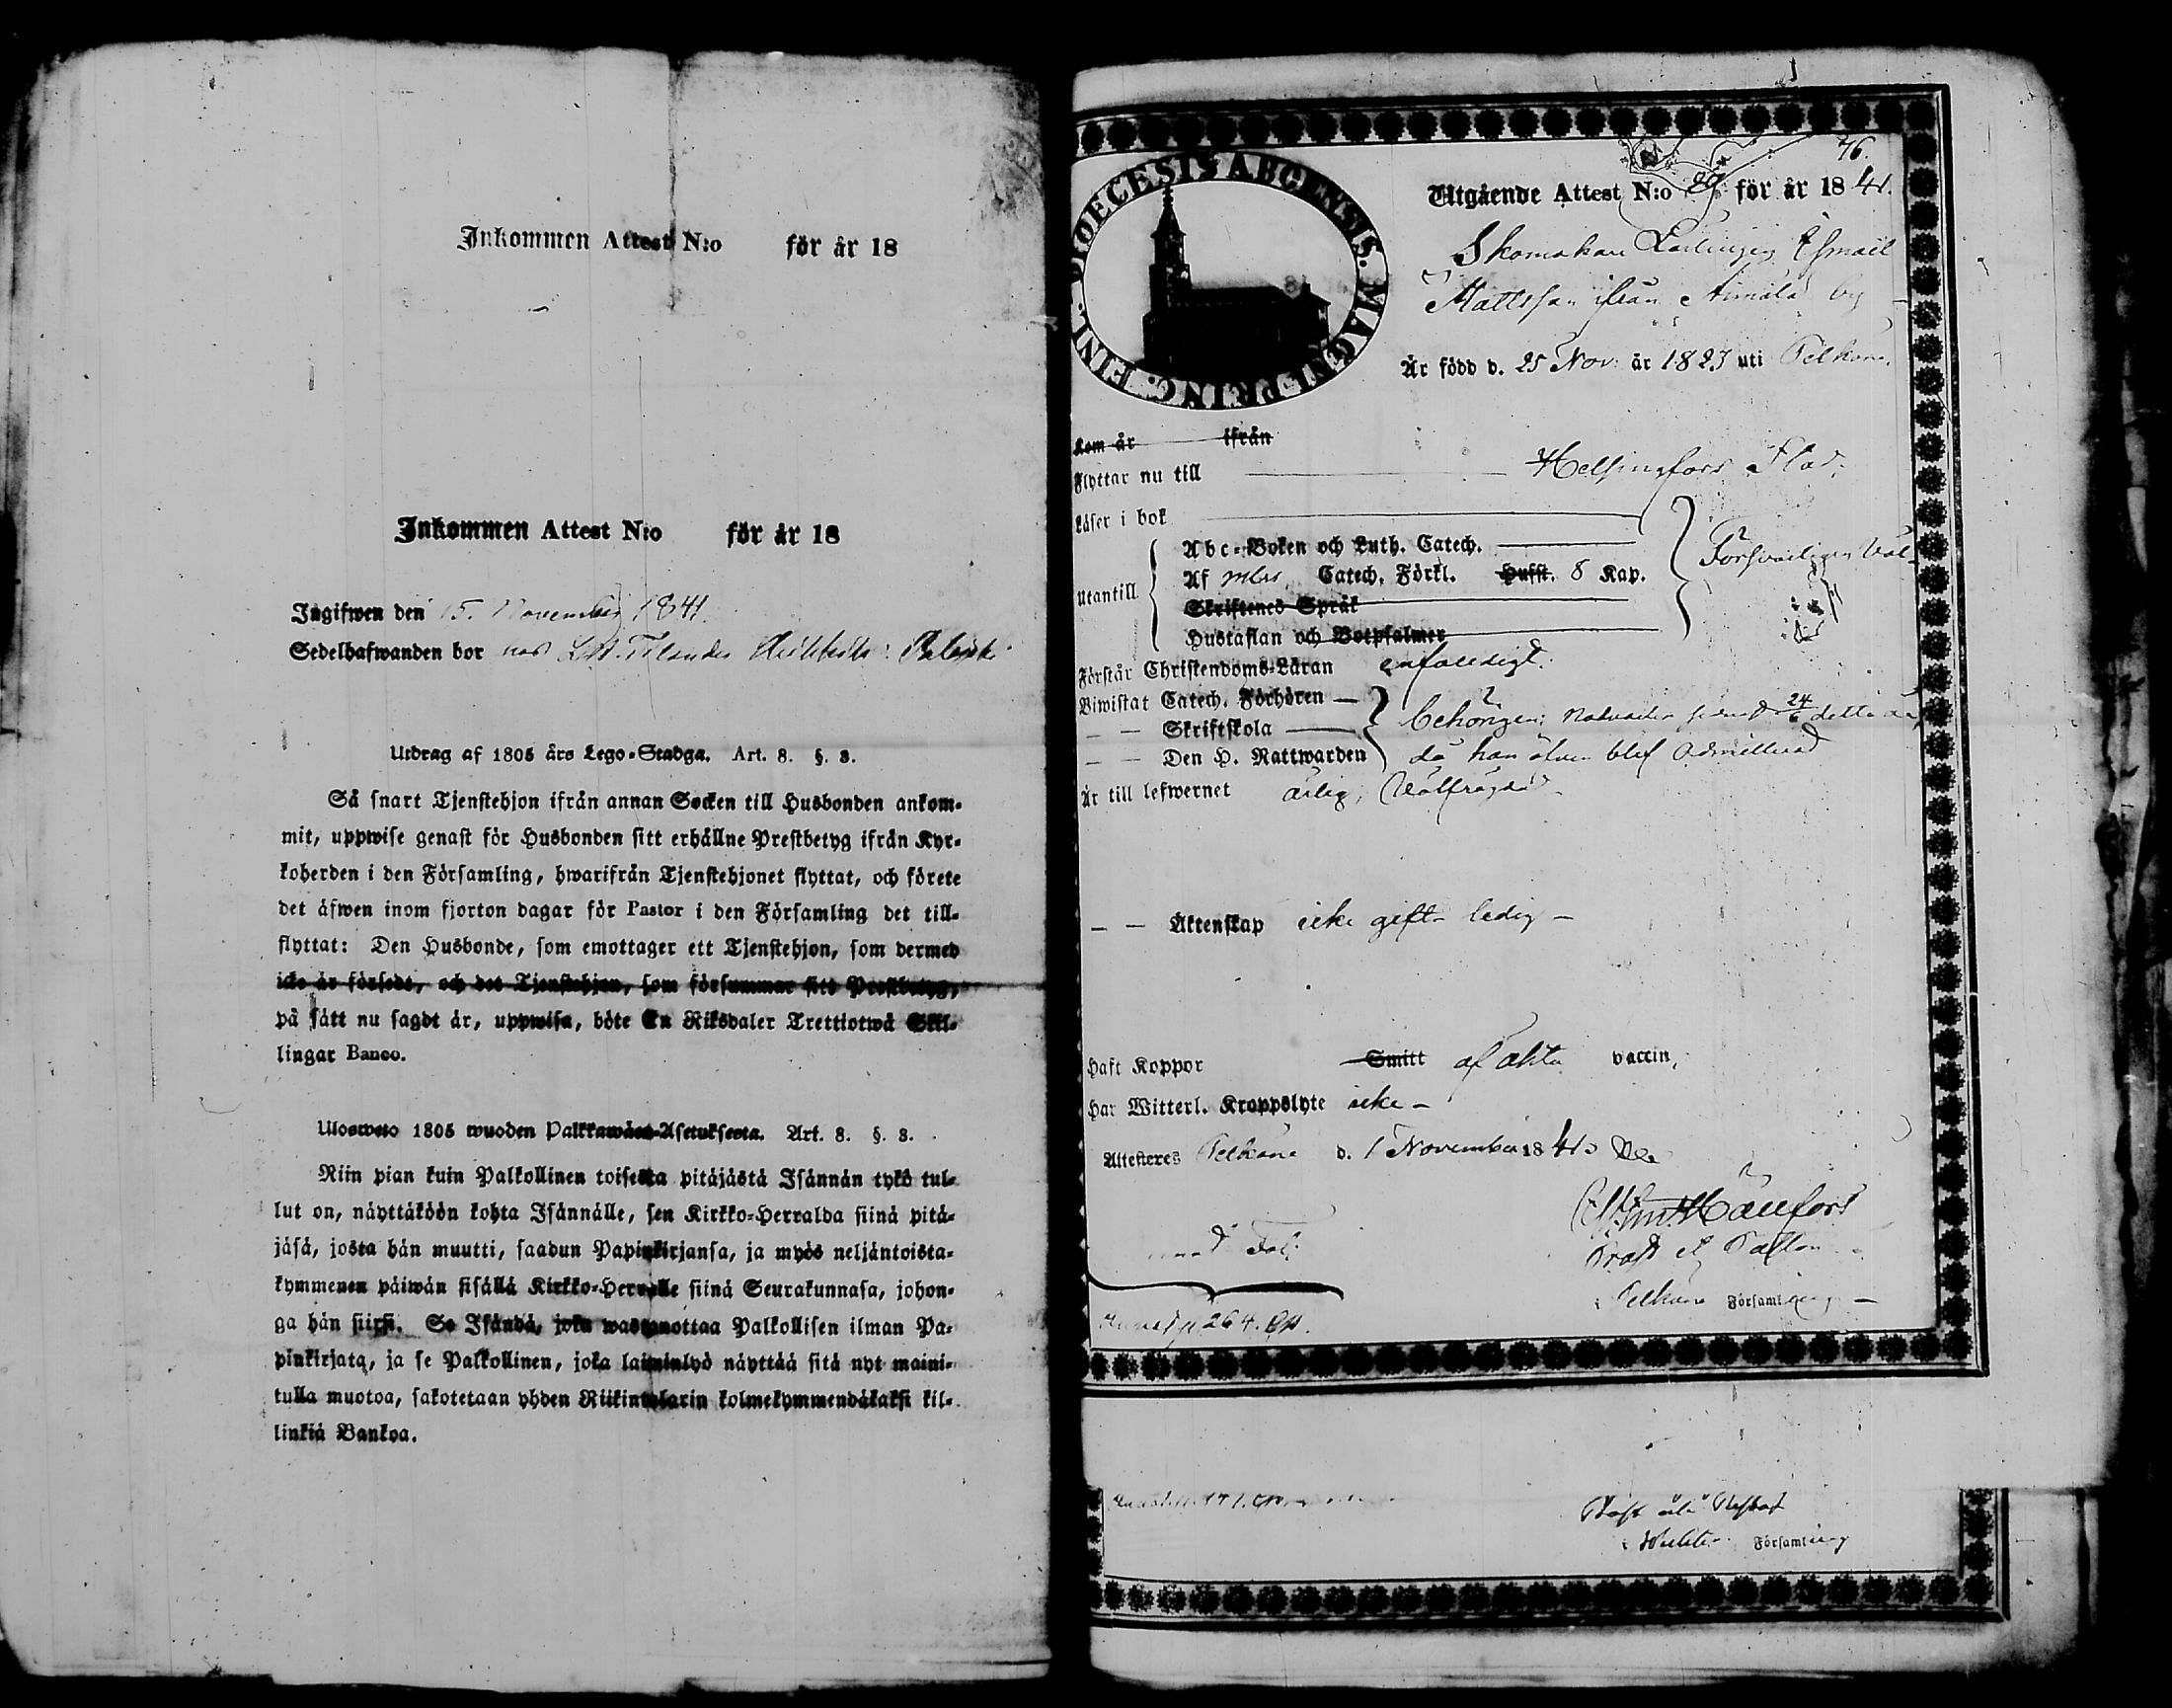 Inkommen Attest N:o för år 18
Inkommen Attest N:o för år 18
Ingifwen den 15. November 1841.
Sedelhafwanden bor hos
Utdrag af 1805 års Lego-Stadga. Art. 8. §. 8.
Så snart Tjenstehjon ifrån annan Socken till Husbonden ankom-
mit, uppwise genast för Husbonden sitt erhållne Prestbetyg ifrån Kyr-
koherden i den Församling, hwarifrån Tjenstehjonet flyttat, och förete
det äfwen inom fjorton dagar för Pastor i den Församling det till-
flyttat: Den Husbonde, som emottager ett Tjenstehjon, som dermed
icke är försedt, och det Tjenstehjon, som försummar sitt Prestbetyg,
på sätt nu sagdt är, uppwisa, böte En Riksdaler Trettiotwå Skil-
lingar Banco.
Ulosweto 1805 wuoden Palkkawäen-Asetuksesta. Art. 8. §. 8.
Niin pian kuin Palkollinen toisesta pitäjästä Isännän tykö tul-
lut on, näyttäköön kohta Isännälle, sen Kirkko-Herralda siinä pitä-
jäsä, josta hän muutti, saadun Papinkirjansa, ja myös neljäntoista-
kymmenen päiwän sisällä Kirkko-Herralle siinä Seurakunnasa, johon-
ga hän siirsi. Se Isändä, joka wastanottaa Palkollisen ilman Pa-
pinkirjata, ja se Palkollinen, joka laiminlyö näyttää sitä nyt maini-
tulla muotoa, sakotetaan yhden Riikintalarin kolmekymmendäkaksi kil-
linkiä Bankoa.
DIOECESIS ABOENSIS. MAGNI PRINC. FINL.
76.
Utgående Attest N:o 29 för år 1841.
Skomakare Lärlingen Esmail
Mattsson ifrån Aimälä by
Är född d. 25 Nov: år 1823 uti Pelkäne.
Kom år ifrån
Flyttar nu till Helsingfors Stad.
Läser i bok
Abc-Boken och Luth. Catech.
Försvarligen Väl
Af Catech. Förkl. Hufst. 8 Kap.
Utantill
Skriftenes Språk
Hustaflan och Botpsalmer
Förstår Christendoms-Läran enfaldigt.
Biwistat Catech. Förhören —
— — Skriftskola — behörigen; Nattvarden sednast 24/6 detta år
— — Den H. Nattwarden då han äfven blef admitterad
Är till lefwernet ärlig, Välfrägdad.
— — Äktenskap icke gift - ledig —
Haft Koppor Smitt af äkta vaccin,
Har Witterl. Kroppslyte icke —
Attesteres Pelkäne d. 1 November 1841
Fol.
Prost et Pastor
i Pelkäne Församling —
264.
Prost
i Församling